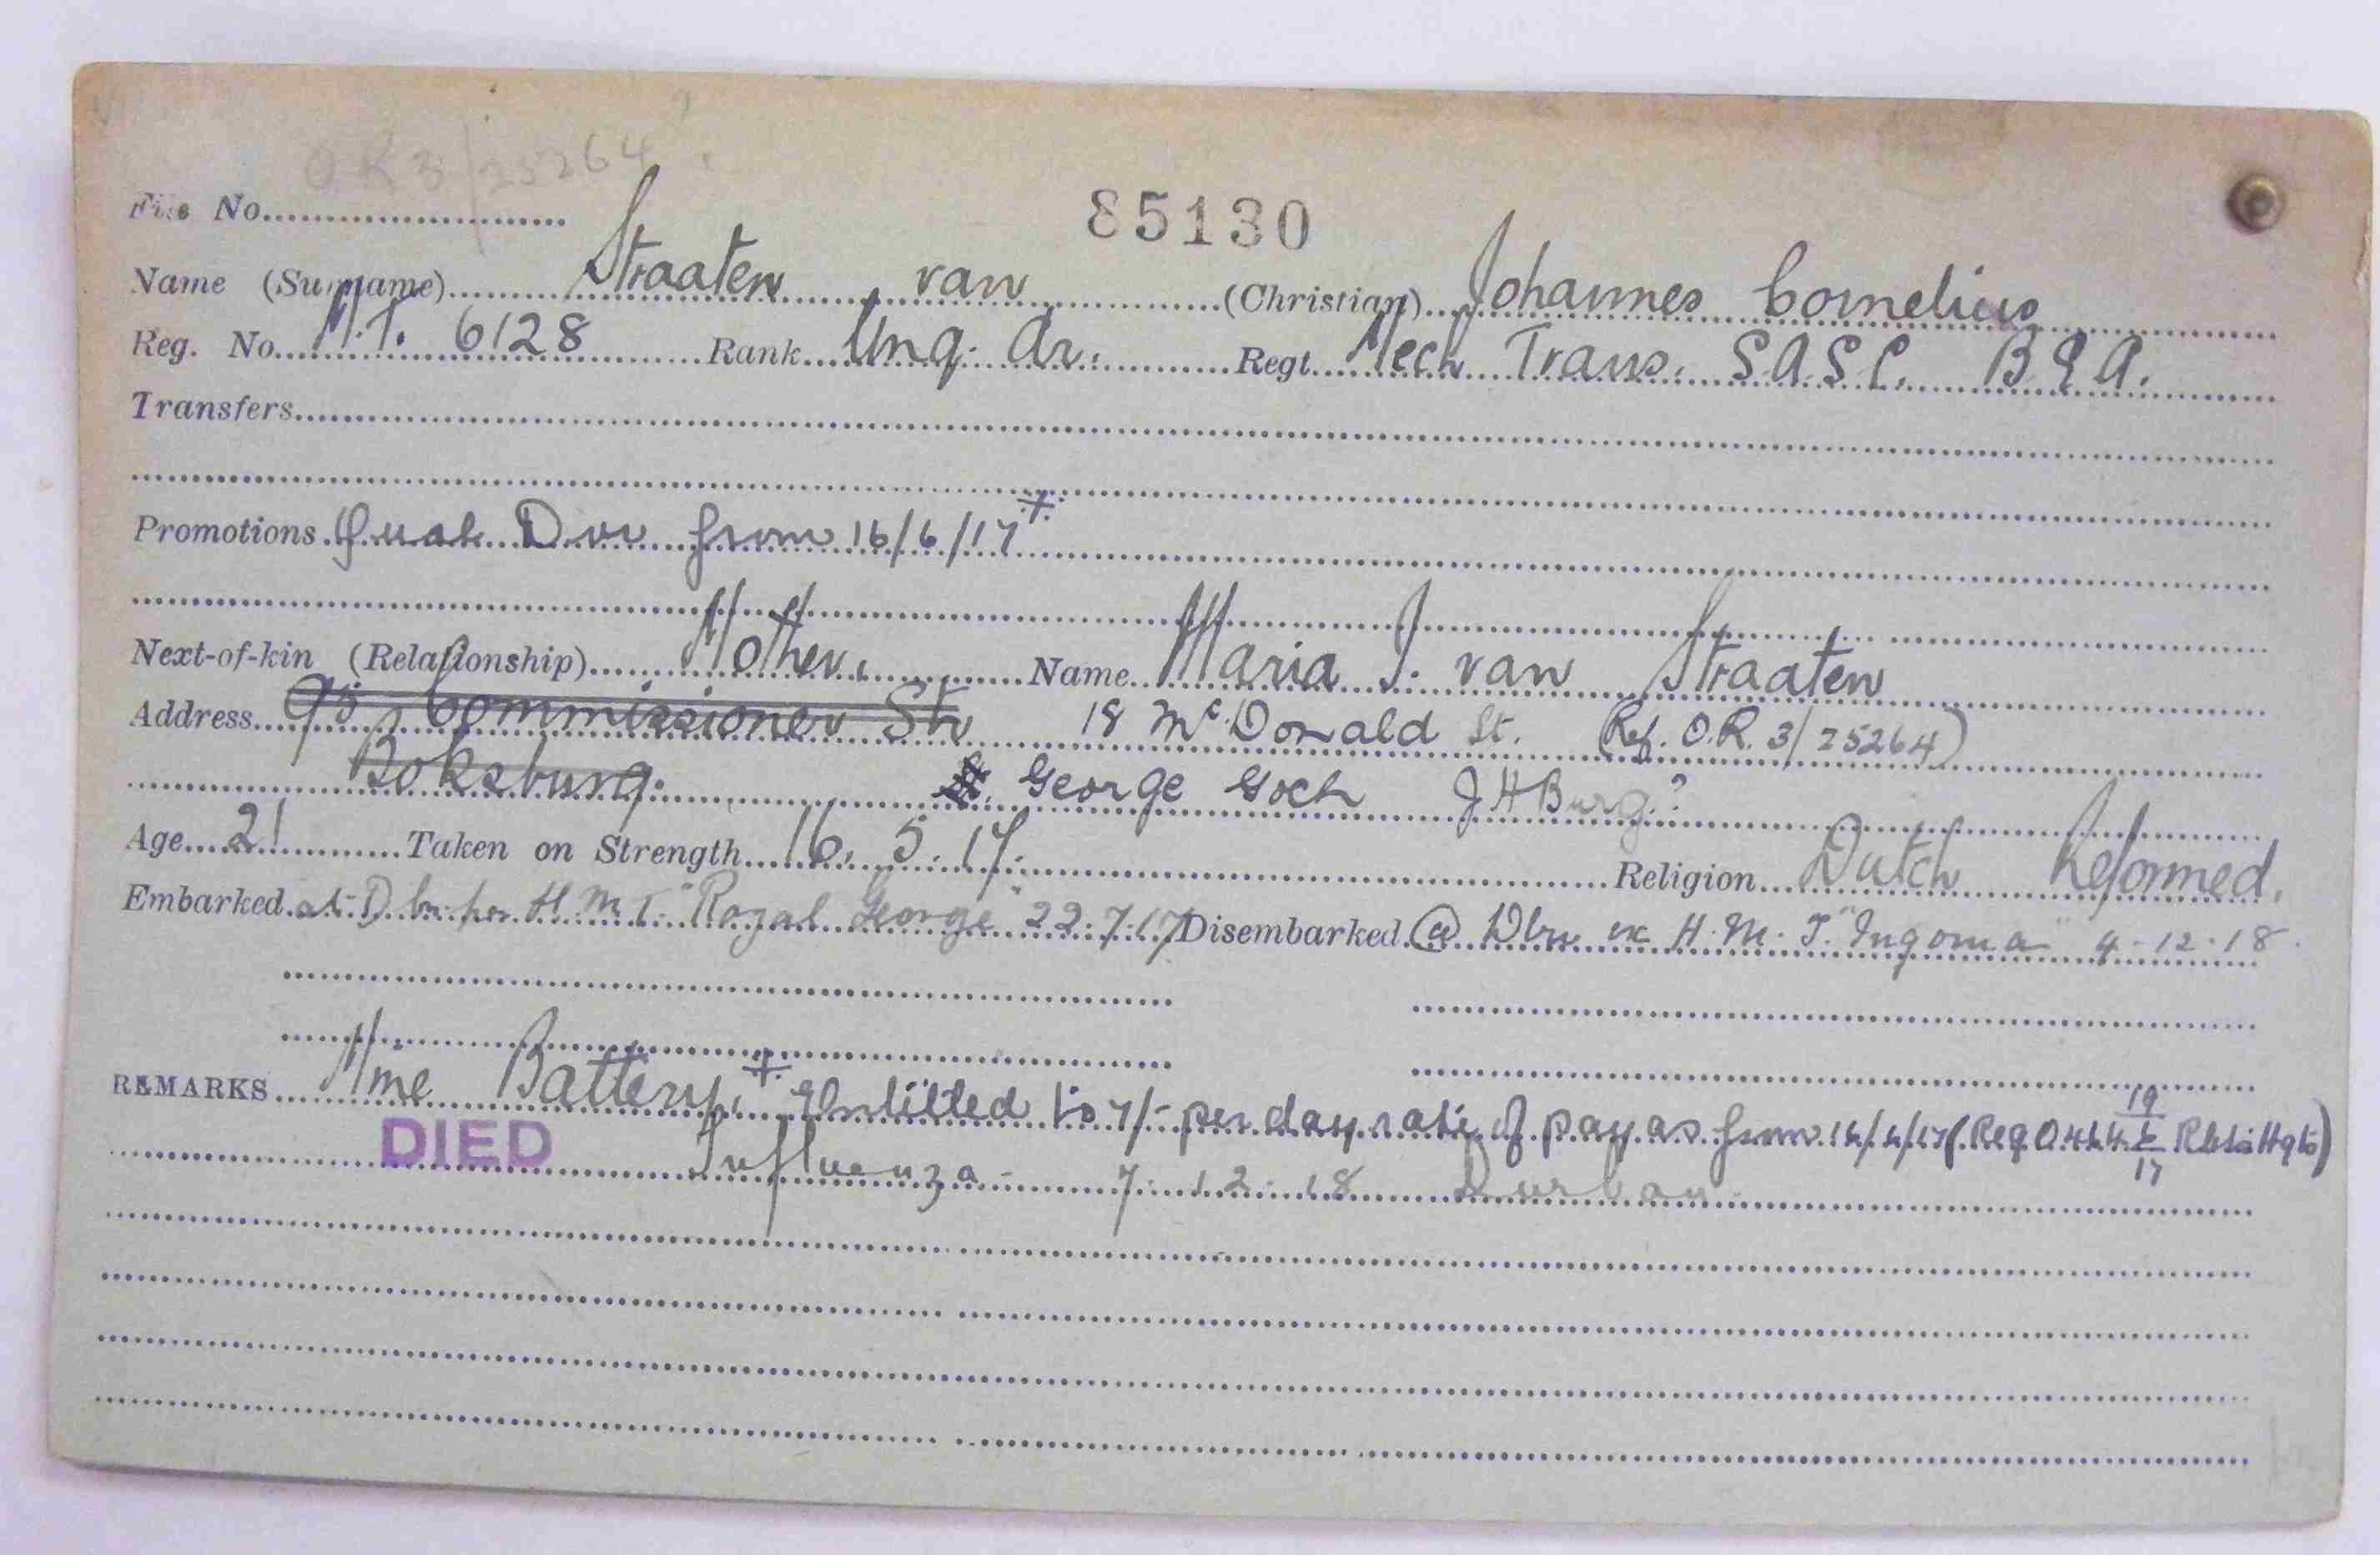 OR 3/25264
File No.
85130
Name (Surname) Straaten van (Christian) Johannes Cornelius
Reg. No. M.T. 6128 Rank Unq. Dr. Regt. Mech Trans. S.A.S.C. B.E.A.
Transfers
Promotions Qual Dvr from 16/6/17 +
Next-of-kin (Relationship) Mother. Name Maria J. van Straaten
Address 95 Commissioner Str 18 McDonald St. (Ref. O.R. 3/25264)
Boksburg. George Goch JHBurg.?
Age 21 Taken on Strength 16.5.17. Religion Dutch Reformed.
Embarked at Dbn per H.M.T. "Royal George" 22.7.17 Disembarked @ Dbn ex H.M.T. "Ingoma" 4-12-18.
REMARKS Mine Battery. + Entitled to 7/- per day rate of pay as from 16/6/17 (Reg O 464 19/6/17 Hqts)
DIED Influenza - 7.12.18 Durban.